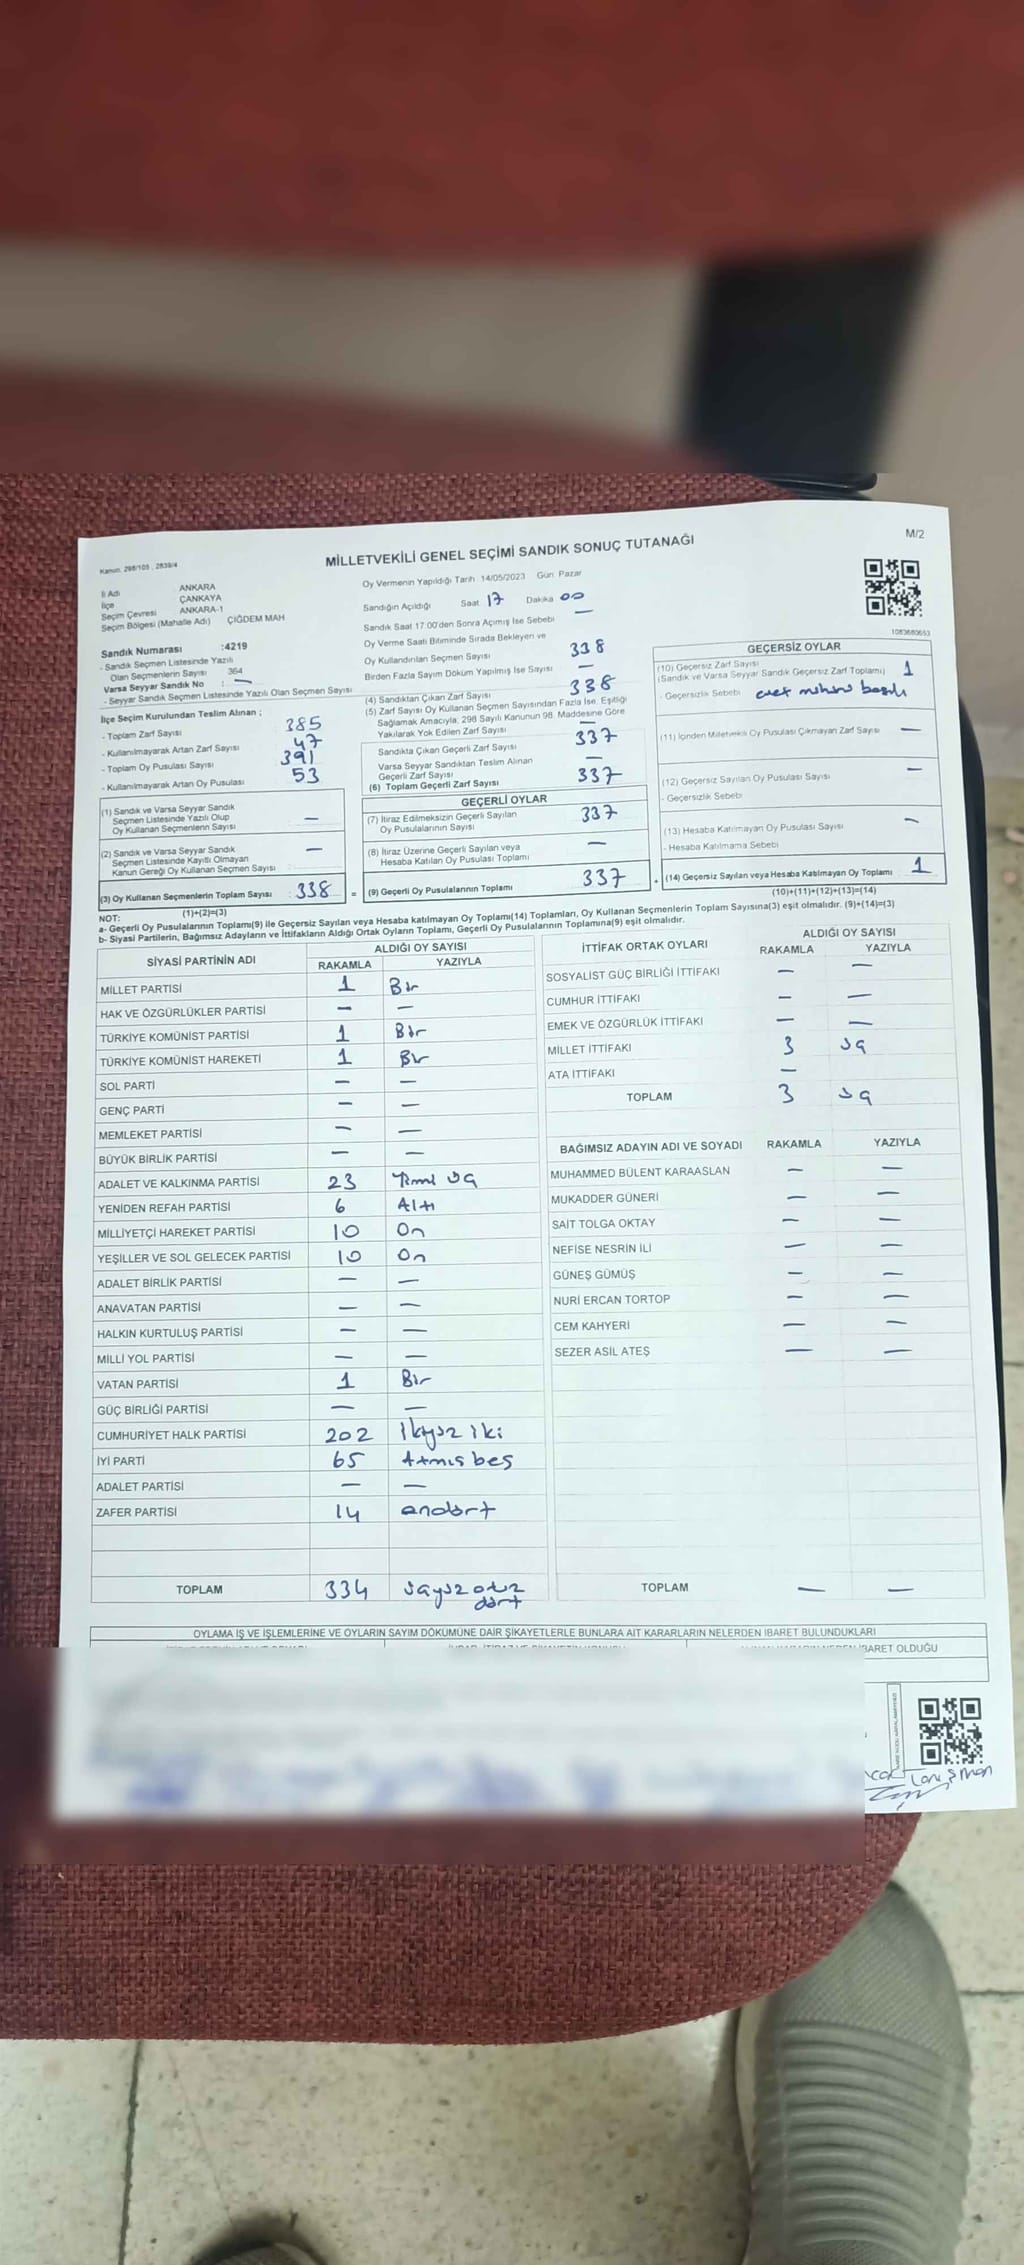 M/2
Kanun: 298/105 , 2839/4
MİLLETVEKİLİ GENEL SEÇİMİ SANDIK SONUÇ TUTANAĞI
İl Adı : ANKARA
İlçe : ÇANKAYA
Seçim Çevresi : ANKARA-1
Seçim Bölgesi (Mahalle Adı) : ÇİĞDEM MAH
Sandık Numarası :4219
- Sandık Seçmen Listesinde Yazılı
Olan Seçmenlerin Sayısı : 364
Varsa Seyyar Sandık No : —
- Seyyar Sandık Seçmen Listesinde Yazılı Olan Seçmen Sayısı
İlçe Seçim Kurulundan Teslim Alınan ;
- Toplam Zarf Sayısı 385
- Kullanılmayarak Artan Zarf Sayısı 47
- Toplam Oy Pusulası Sayısı 391
- Kullanılmayarak Artan Oy Pusulası 53
(1) Sandık ve Varsa Seyyar Sandık
Seçmen Listesinde Yazılı Olup
Oy Kullanan Seçmenlerin Sayısı —
(2) Sandık ve Varsa Seyyar Sandık
Seçmen Listesinde Kayıtlı Olmayan
Kanun Gereği Oy Kullanan Seçmen Sayısı —
(3) Oy Kullanan Seçmenlerin Toplam Sayısı : 338 =
(1)+(2)=(3)
Oy Vermenin Yapıldığı Tarih 14/05/2023 Gün: Pazar
Sandığın Açıldığı Saat 17 Dakika 00
Sandık Saat 17:00'den Sonra Açılmış İse Sebebi —
Oy Verme Saati Bitiminde Sırada Bekleyen ve
Oy Kullandırılan Seçmen Sayısı 338
Birden Fazla Sayım Döküm Yapılmış İse Sayısı —
(4) Sandıktan Çıkan Zarf Sayısı 338
(5) Zarf Sayısı Oy Kullanan Seçmen Sayısından Fazla İse, Eşitliği
Sağlamak Amacıyla; 298 Sayılı Kanunun 98. Maddesine Göre
Yakılarak Yok Edilen Zarf Sayısı —
Sandıkta Çıkan Geçerli Zarf Sayısı 337
Varsa Seyyar Sandıktan Teslim Alınan
Geçerli Zarf Sayısı —
(6) Toplam Geçerli Zarf Sayısı 337
GEÇERLİ OYLAR
(7) İtiraz Edilmeksizin Geçerli Sayılan
Oy Pusulalarının Sayısı 337
(8) İtiraz Üzerine Geçerli Sayılan veya
Hesaba Katılan Oy Pusulası Toplamı —
(9) Geçerli Oy Pusulalarının Toplamı 337 +
1083680653
GEÇERSİZ OYLAR
(10) Geçersiz Zarf Sayısı
(Sandık ve Varsa Seyyar Sandık Geçersiz Zarf Toplamı) 1
- Geçersizlik Sebebi evet mührü basılı
(11) İçinden Milletvekili Oy Pusulası Çıkmayan Zarf Sayısı —
(12) Geçersiz Sayılan Oy Pusulası Sayısı —
- Geçersizlik Sebebi
(13) Hesaba Katılmayan Oy Pusulası Sayısı —
- Hesaba Katılmama Sebebi
(14) Geçersiz Sayılan veya Hesaba Katılmayan Oy Toplamı 1
(10)+(11)+(12)+(13)=(14)
NOT:
a- Geçerli Oy Pusulalarının Toplamı(9) ile Geçersiz Sayılan veya Hesaba katılmayan Oy Toplamı(14) Toplamları, Oy Kullanan Seçmenlerin Toplam Sayısına(3) eşit olmalıdır. (9)+(14)=(3)
b- Siyasi Partilerin, Bağımsız Adayların ve İttifakların Aldığı Ortak Oyların Toplamı, Geçerli Oy Pusulalarının Toplamına(9) eşit olmalıdır.
SİYASİ PARTİNİN ADI ALDIĞI OY SAYISI
RAKAMLA YAZIYLA
MİLLET PARTİSİ 1 Bir
HAK VE ÖZGÜRLÜKLER PARTİSİ — —
TÜRKİYE KOMÜNİST PARTİSİ 1 Bir
TÜRKİYE KOMÜNİST HAREKETİ 1 Bir
SOL PARTİ — —
GENÇ PARTİ — —
MEMLEKET PARTİSİ — —
BÜYÜK BİRLİK PARTİSİ — —
ADALET VE KALKINMA PARTİSİ 23 Yirmi üç
YENİDEN REFAH PARTİSİ 6 Altı
MİLLİYETÇİ HAREKET PARTİSİ 10 On
YEŞİLLER VE SOL GELECEK PARTİSİ 10 On
ADALET BİRLİK PARTİSİ — —
ANAVATAN PARTİSİ — —
HALKIN KURTULUŞ PARTİSİ — —
MİLLİ YOL PARTİSİ — —
VATAN PARTİSİ 1 Bir
GÜÇ BİRLİĞİ PARTİSİ — —
CUMHURİYET HALK PARTİSİ 202 ikiyüz iki
İYİ PARTİ 65 Atmış beş
ADALET PARTİSİ — —
ZAFER PARTİSİ 14 ondört
TOPLAM 334 üçyüz otuz
dört
İTTİFAK ORTAK OYLARI ALDIĞI OY SAYISI
RAKAMLA YAZIYLA
SOSYALİST GÜÇ BİRLİĞİ İTTİFAKI — —
CUMHUR İTTİFAKI — —
EMEK VE ÖZGÜRLÜK İTTİFAKI — —
MİLLET İTTİFAKI 3 üç
ATA İTTİFAKI —
TOPLAM 3 üç
BAĞIMSIZ ADAYIN ADI VE SOYADI RAKAMLA YAZIYLA
MUHAMMED BÜLENT KARAASLAN — —
MUKADDER GÜNERİ — —
SAİT TOLGA OKTAY — —
NEFİSE NESRİN İLİ — —
GÜNEŞ GÜMÜŞ — —
NURİ ERCAN TORTOP — —
CEM KAHYERİ — —
SEZER ASİL ATEŞ — —
TOPLAM — —
OYLAMA İŞ VE İŞLEMLERİNE VE OYLARIN SAYIM DÖKÜMÜNE DAİR ŞİKAYETLERLE BUNLARA AİT KARARLARIN NELERDEN İBARET BULUNDUKLARI
İBARET OLDUĞU